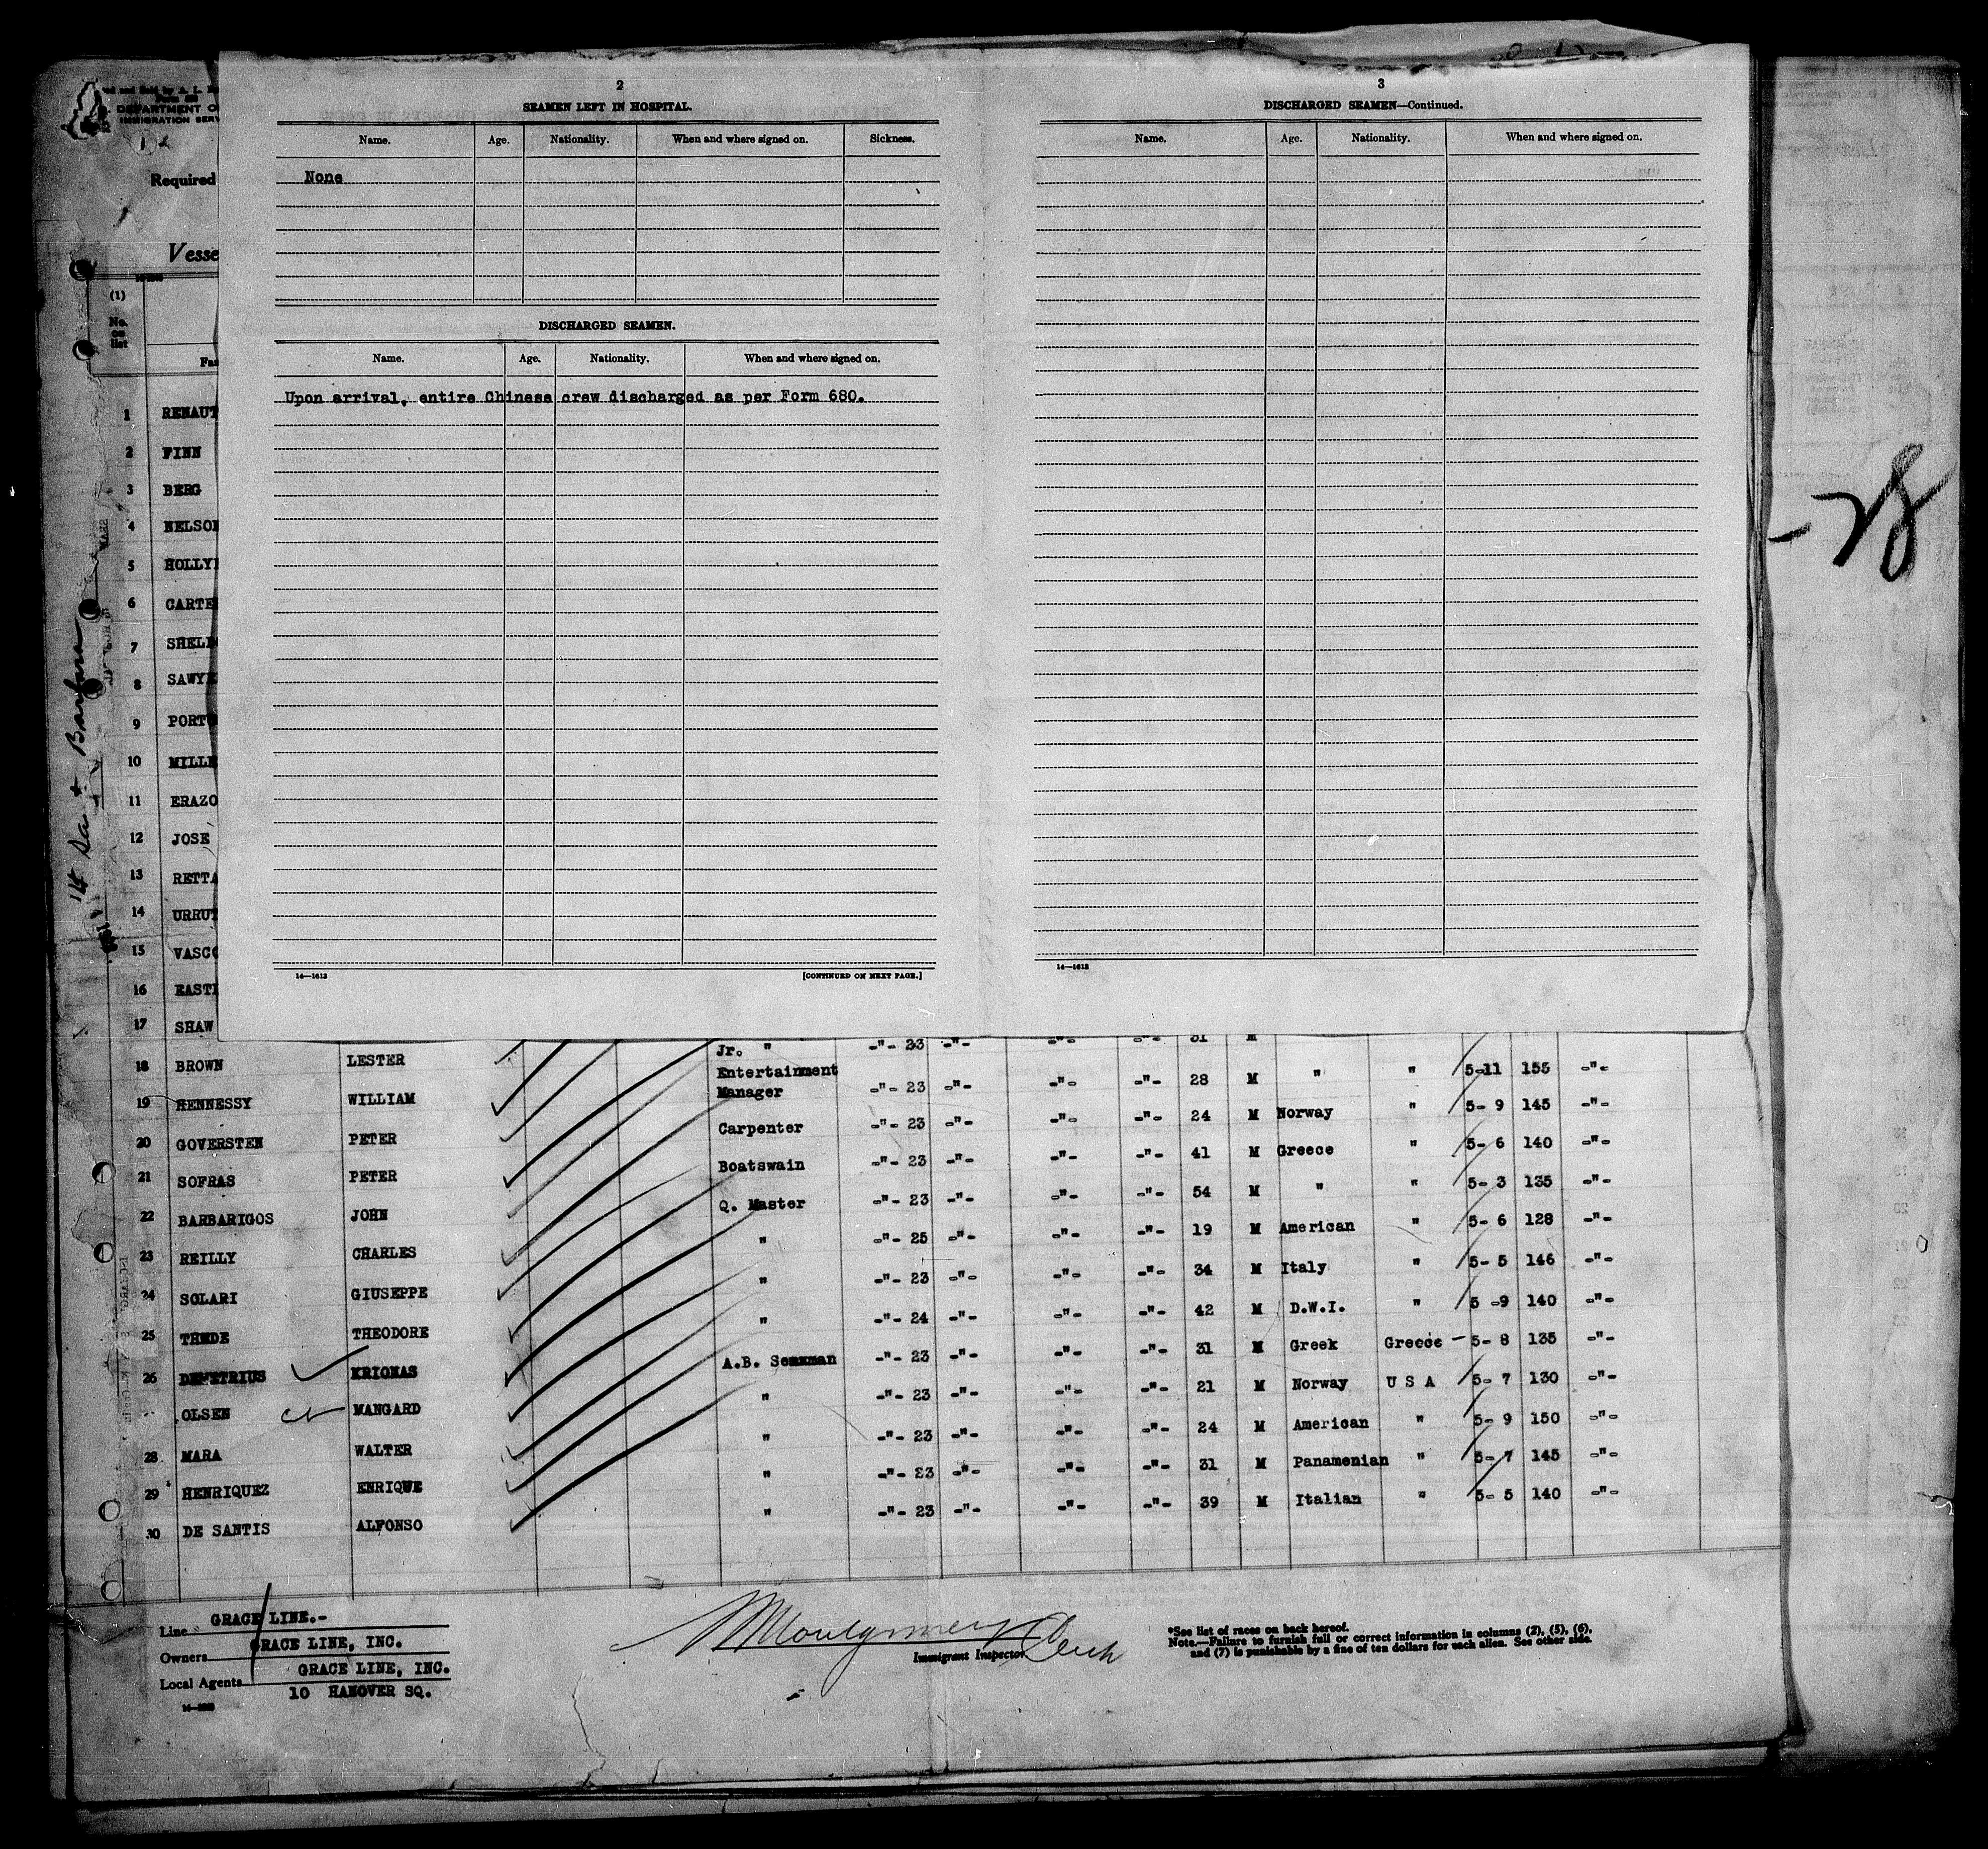 2
SEAMEN LEFT IN HOSPITAL.
Name. Age. Nationality. When and where signed on. Sickness.
None
DISCHARGED SEAMEN.
Name. Age. Nationality. When and where signed on.
Upon arrival, entire Chinese crew discharged as per Form 680.
14—1613
[CONTINUED ON NEXT PAGE.]
3
DISCHARGED SEAMEN—Continued.
Name. Age. Nationality. When and where signed on.
14—1613
DEPARTMENT O
IMMIGRATION SERV
Required
Vesse
(1)
No. on list
Fa
1 RENAUT
2 FINN
3 BERG
4 NELSON
5 HOLLY
6 CARTE
7 SHEL
8 SAWY
9 PORT
10 MILL
11 ERAZO
12 JOSE
13 RETTA
14 URRUT
15 VASCO
16 EAST
17 SHAW
18 BROWN LESTER Jr. " -"- 23 -"- -"- -"- 31 M
19 HENNESSY WILLIAM Entertainment Manager -"- 23 -"- -"- -"- 28 M " " 5-11 155 -"-
20 GOVERSTEN PETER Carpenter -"- 23 -"- -"- -"- 24 M Norway " 5- 9 145 -"-
21 SOFRAS PETER Boatswain -"- 23 -"- -"- -"- 41 M Greece " 5- 6 140 -"-
22 BARBARIGOS JOHN Q. Master -"- 23 -"- -"- -"- 54 M " " 5- 3 135 -"-
23 REILLY CHARLES " -"- 25 -"- -"- -"- 19 M American " 5- 6 128 -"-
24 SOLARI GIUSEPPE " -"- 23 -"- -"- -"- 34 M Italy " 5- 5 146 -"-
25 THEDE THEODORE " -"- 24 -"- -"- -"- 42 M D.W.I. " 5 -9 140 -"-
26 DEMETRIUS KRIONAS A.B. Seaman -"- 23 -"- -"- -"- 31 M Greek Greece - 5- 8 135 -"-
OLSEN MANGARD " -"- 23 -"- -"- -"- 21 M Norway U S A 5- 7 130 -"-
28 MARA WALTER " -"- 23 -"- -"- -"- 24 M American " 5- 9 150 -"-
29 HENRIQUEZ ENRIQUE " -"- 23 -"- -"- -"- 31 M Panamenian " 5- 7 145 -"-
30 DE SANTIS ALFONSO " -"- 23 -"- -"- -"- 39 M Italian " 5- 5 140 -"-
Line GRACE LINE.-
Owners GRACE LINE, INC.
Local Agents GRACE LINE, INC.
10 HANOVER SQ.
Immigrant Inspector
*See list of races on back hereof.
Note.—Failure to furnish full or correct information in columns (2), (5), (6),
and (7) is punishable by a fine of ten dollars for each alien. See other side.
28